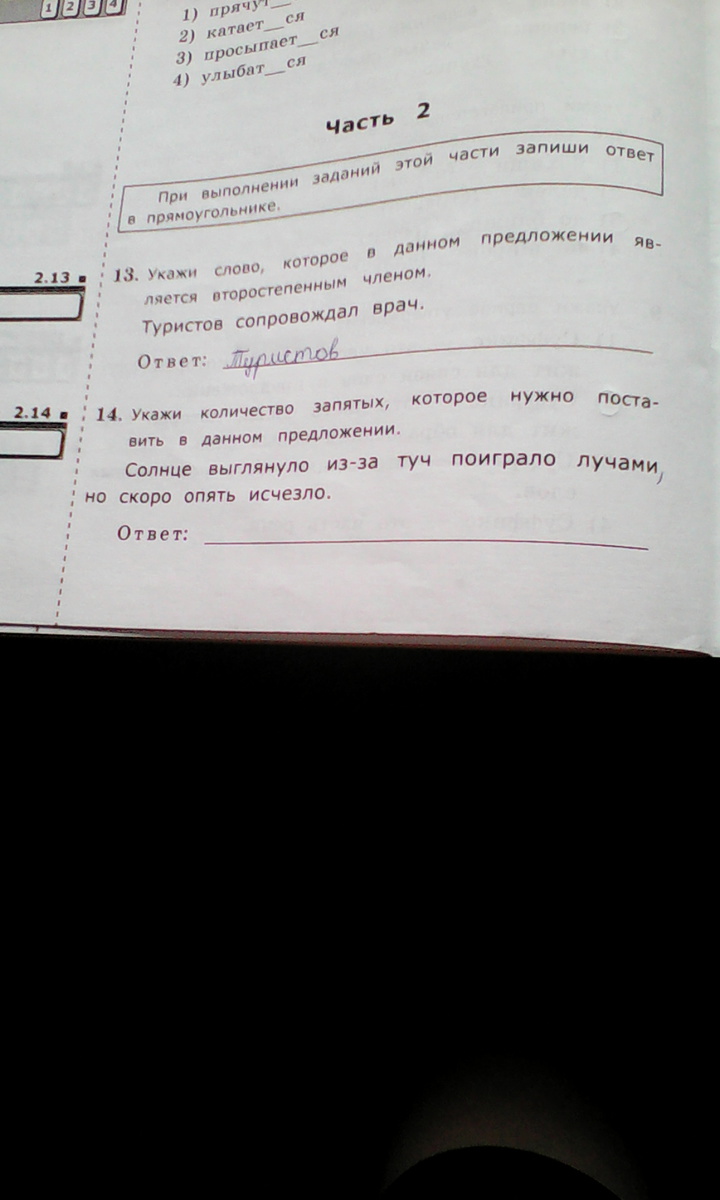 1 2 3 4
1) прячут__
2) катает__ся
3) просыпает__ся
4) улыбат__ся
Часть 2
При выполнении заданий этой части запиши ответ
в прямоугольнике.
2.13
13. Укажи слово, которое в данном предложении яв-
ляется второстепенным членом.
Туристов сопровождал врач.
Ответ: Туристов
2.14
14. Укажи количество запятых, которое нужно поста-
вить в данном предложении.
Солнце выглянуло из-за туч поиграло лучами,
но скоро опять исчезло.
Ответ: